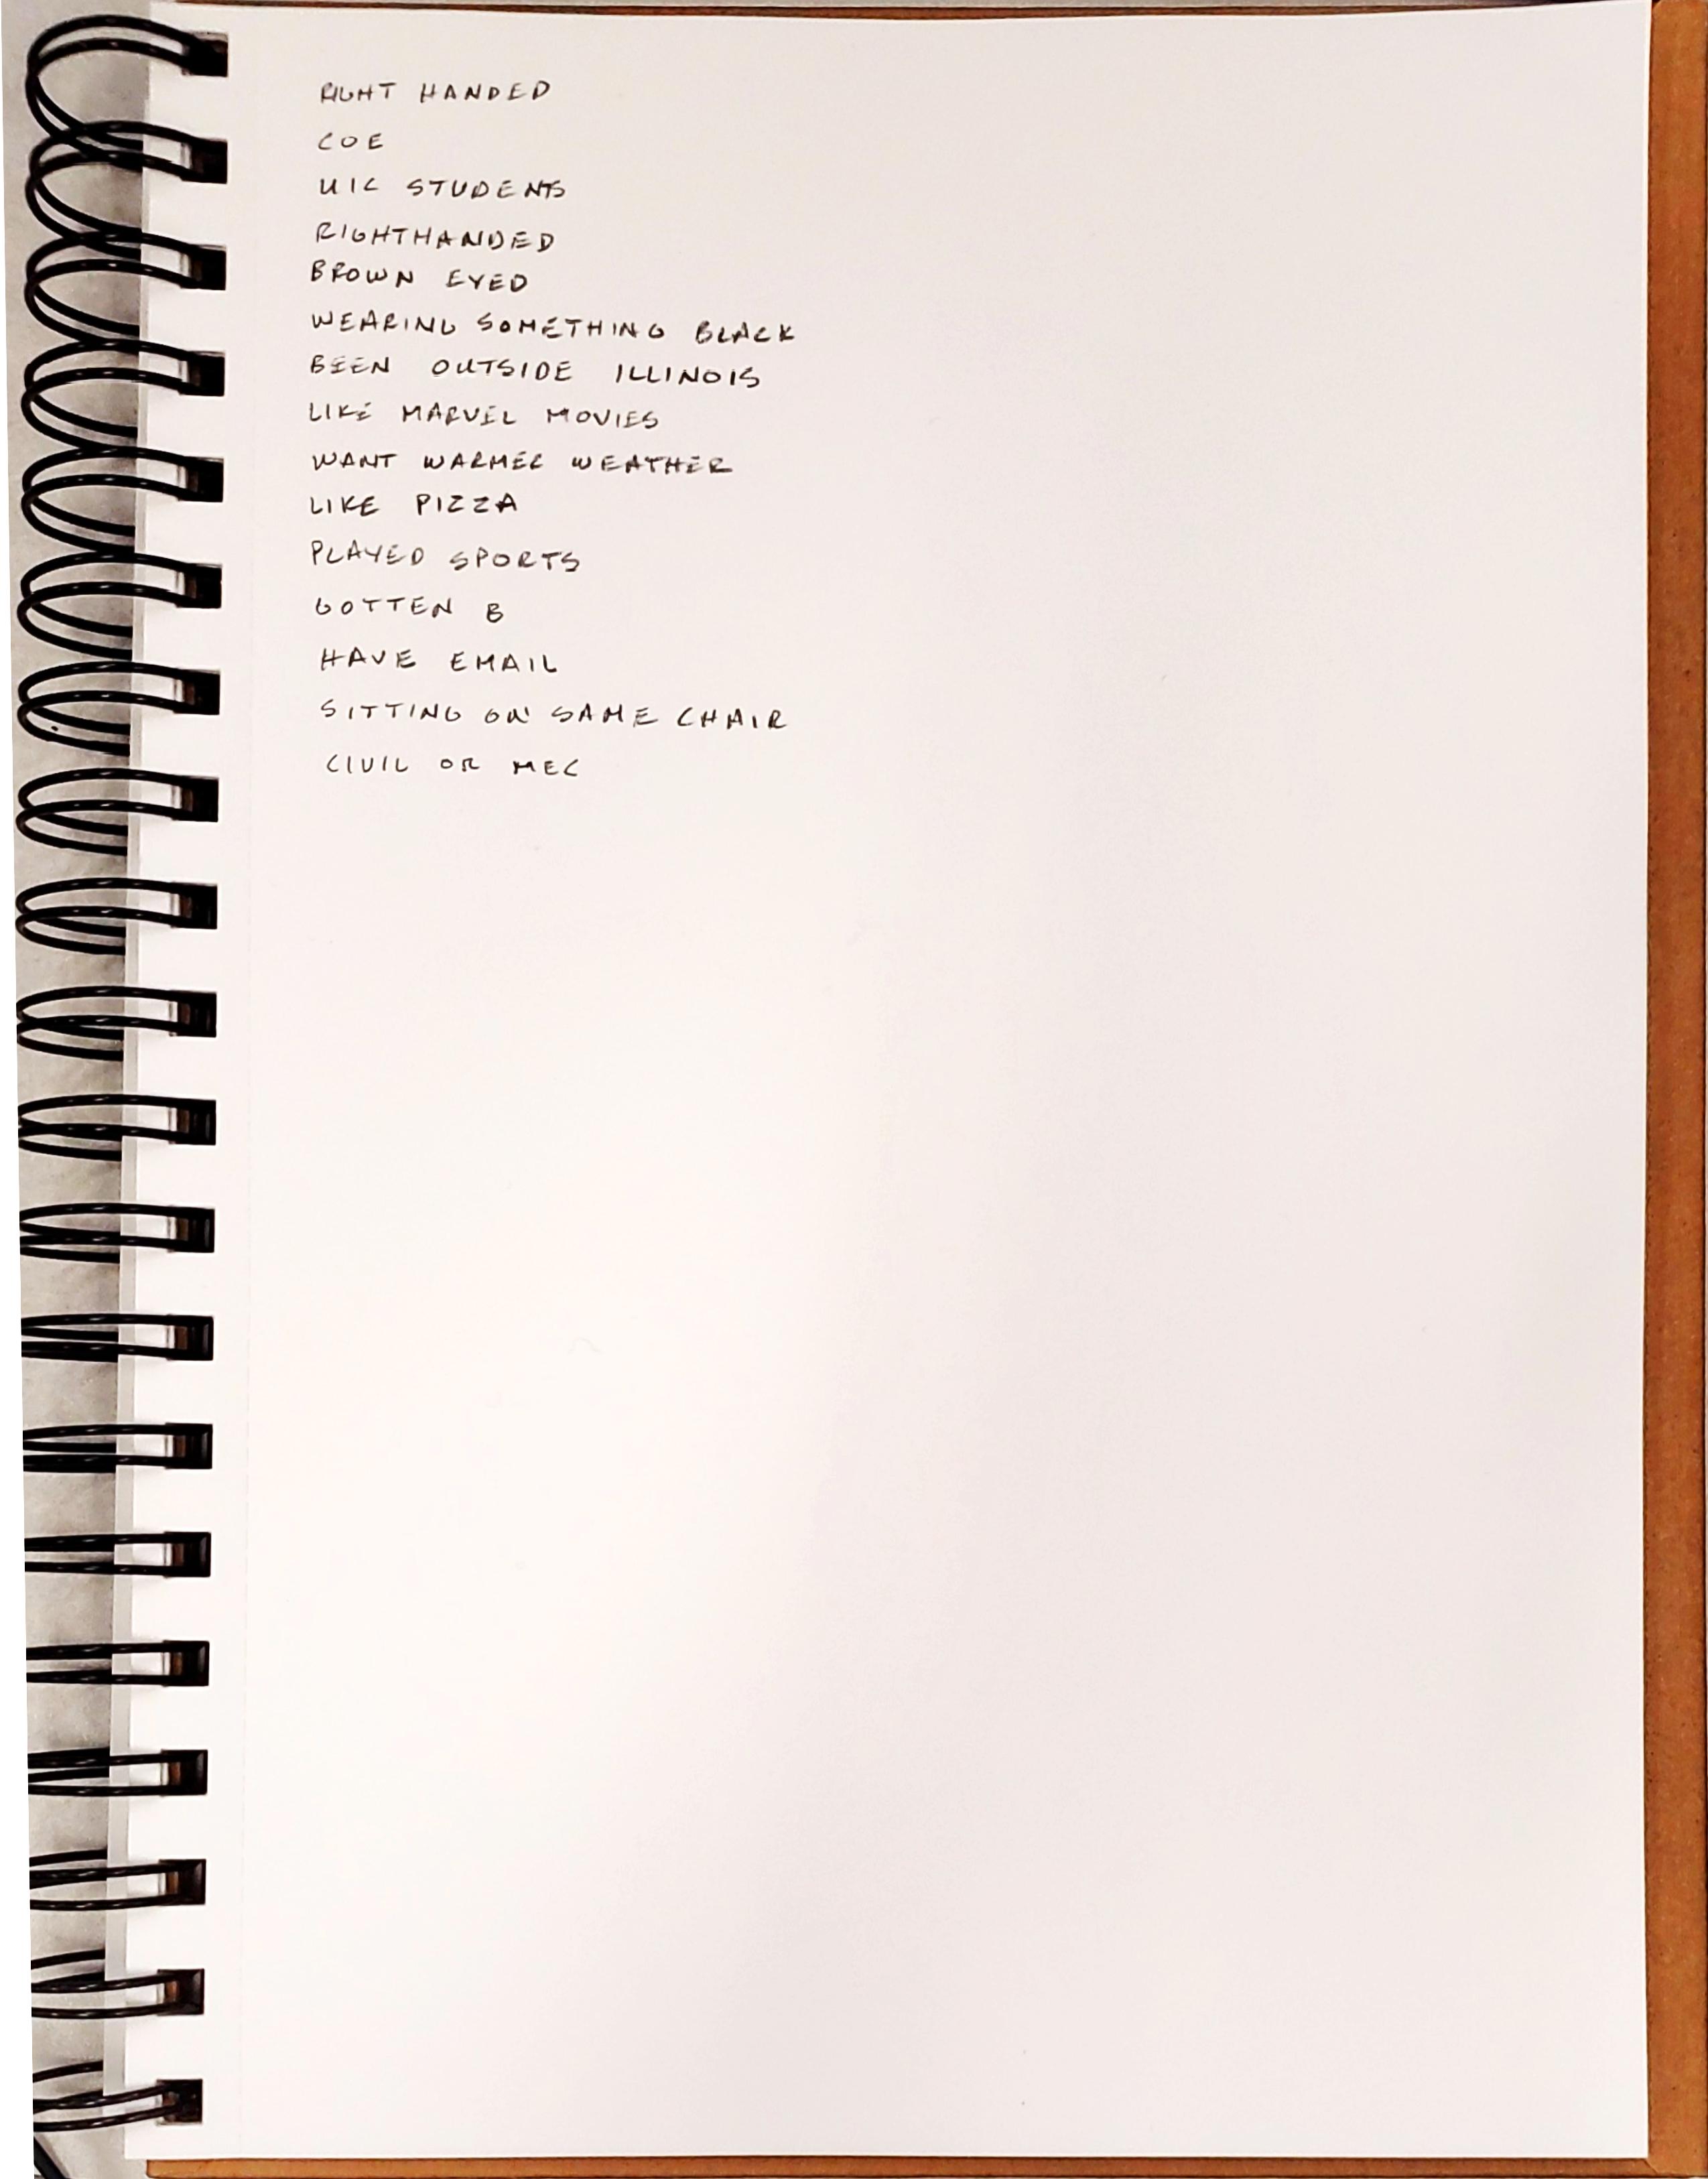 RIGHT HANDED
COE
UIC STUDENTS
RIGHTHANDED
BROWN EYED
WEARING SOMETHING BLACK
BEEN OUTSIDE ILLINOIS
LIKE MARVEL MOVIES
WANT WARMER WEATHER
LIKE PIZZA
PLAYED SPORTS
GOTTEN B
HAVE EMAIL
SITTING ON SAME CHAIR
CIVIL OR MEC